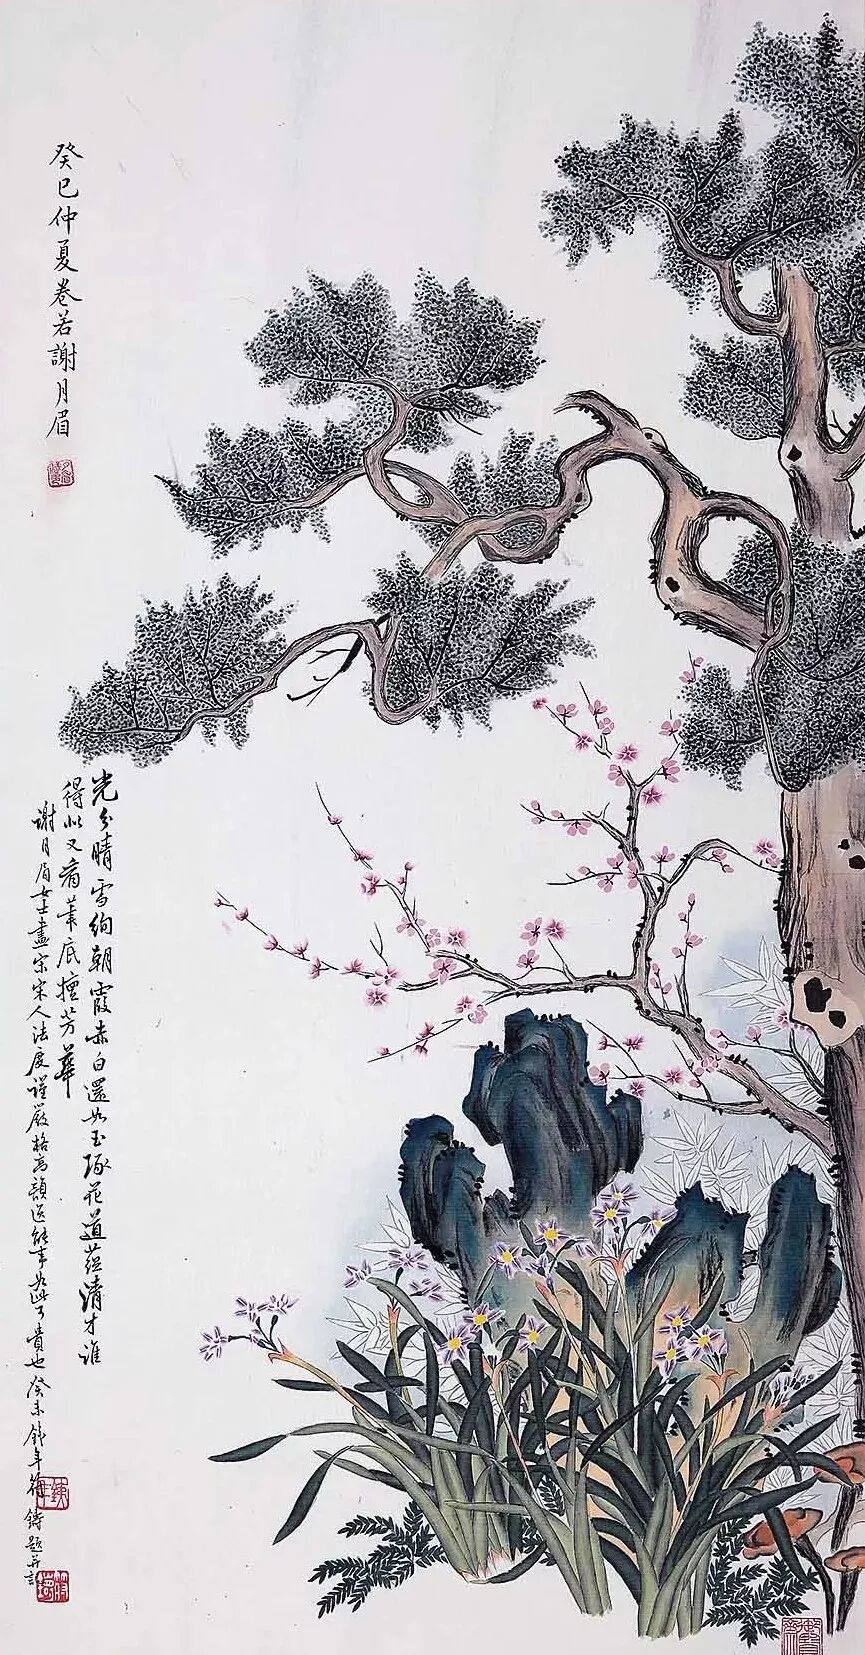 癸巳仲夏卷若謝月眉
光分晴雪絢朝霞赤白還如玉琢花道蘊清才誰
得似又看筆底擅芳華
謝月眉女士畫宗宋人法度謹嚴格高韻逸能事如此可貴也癸未銕年符鑄題并言